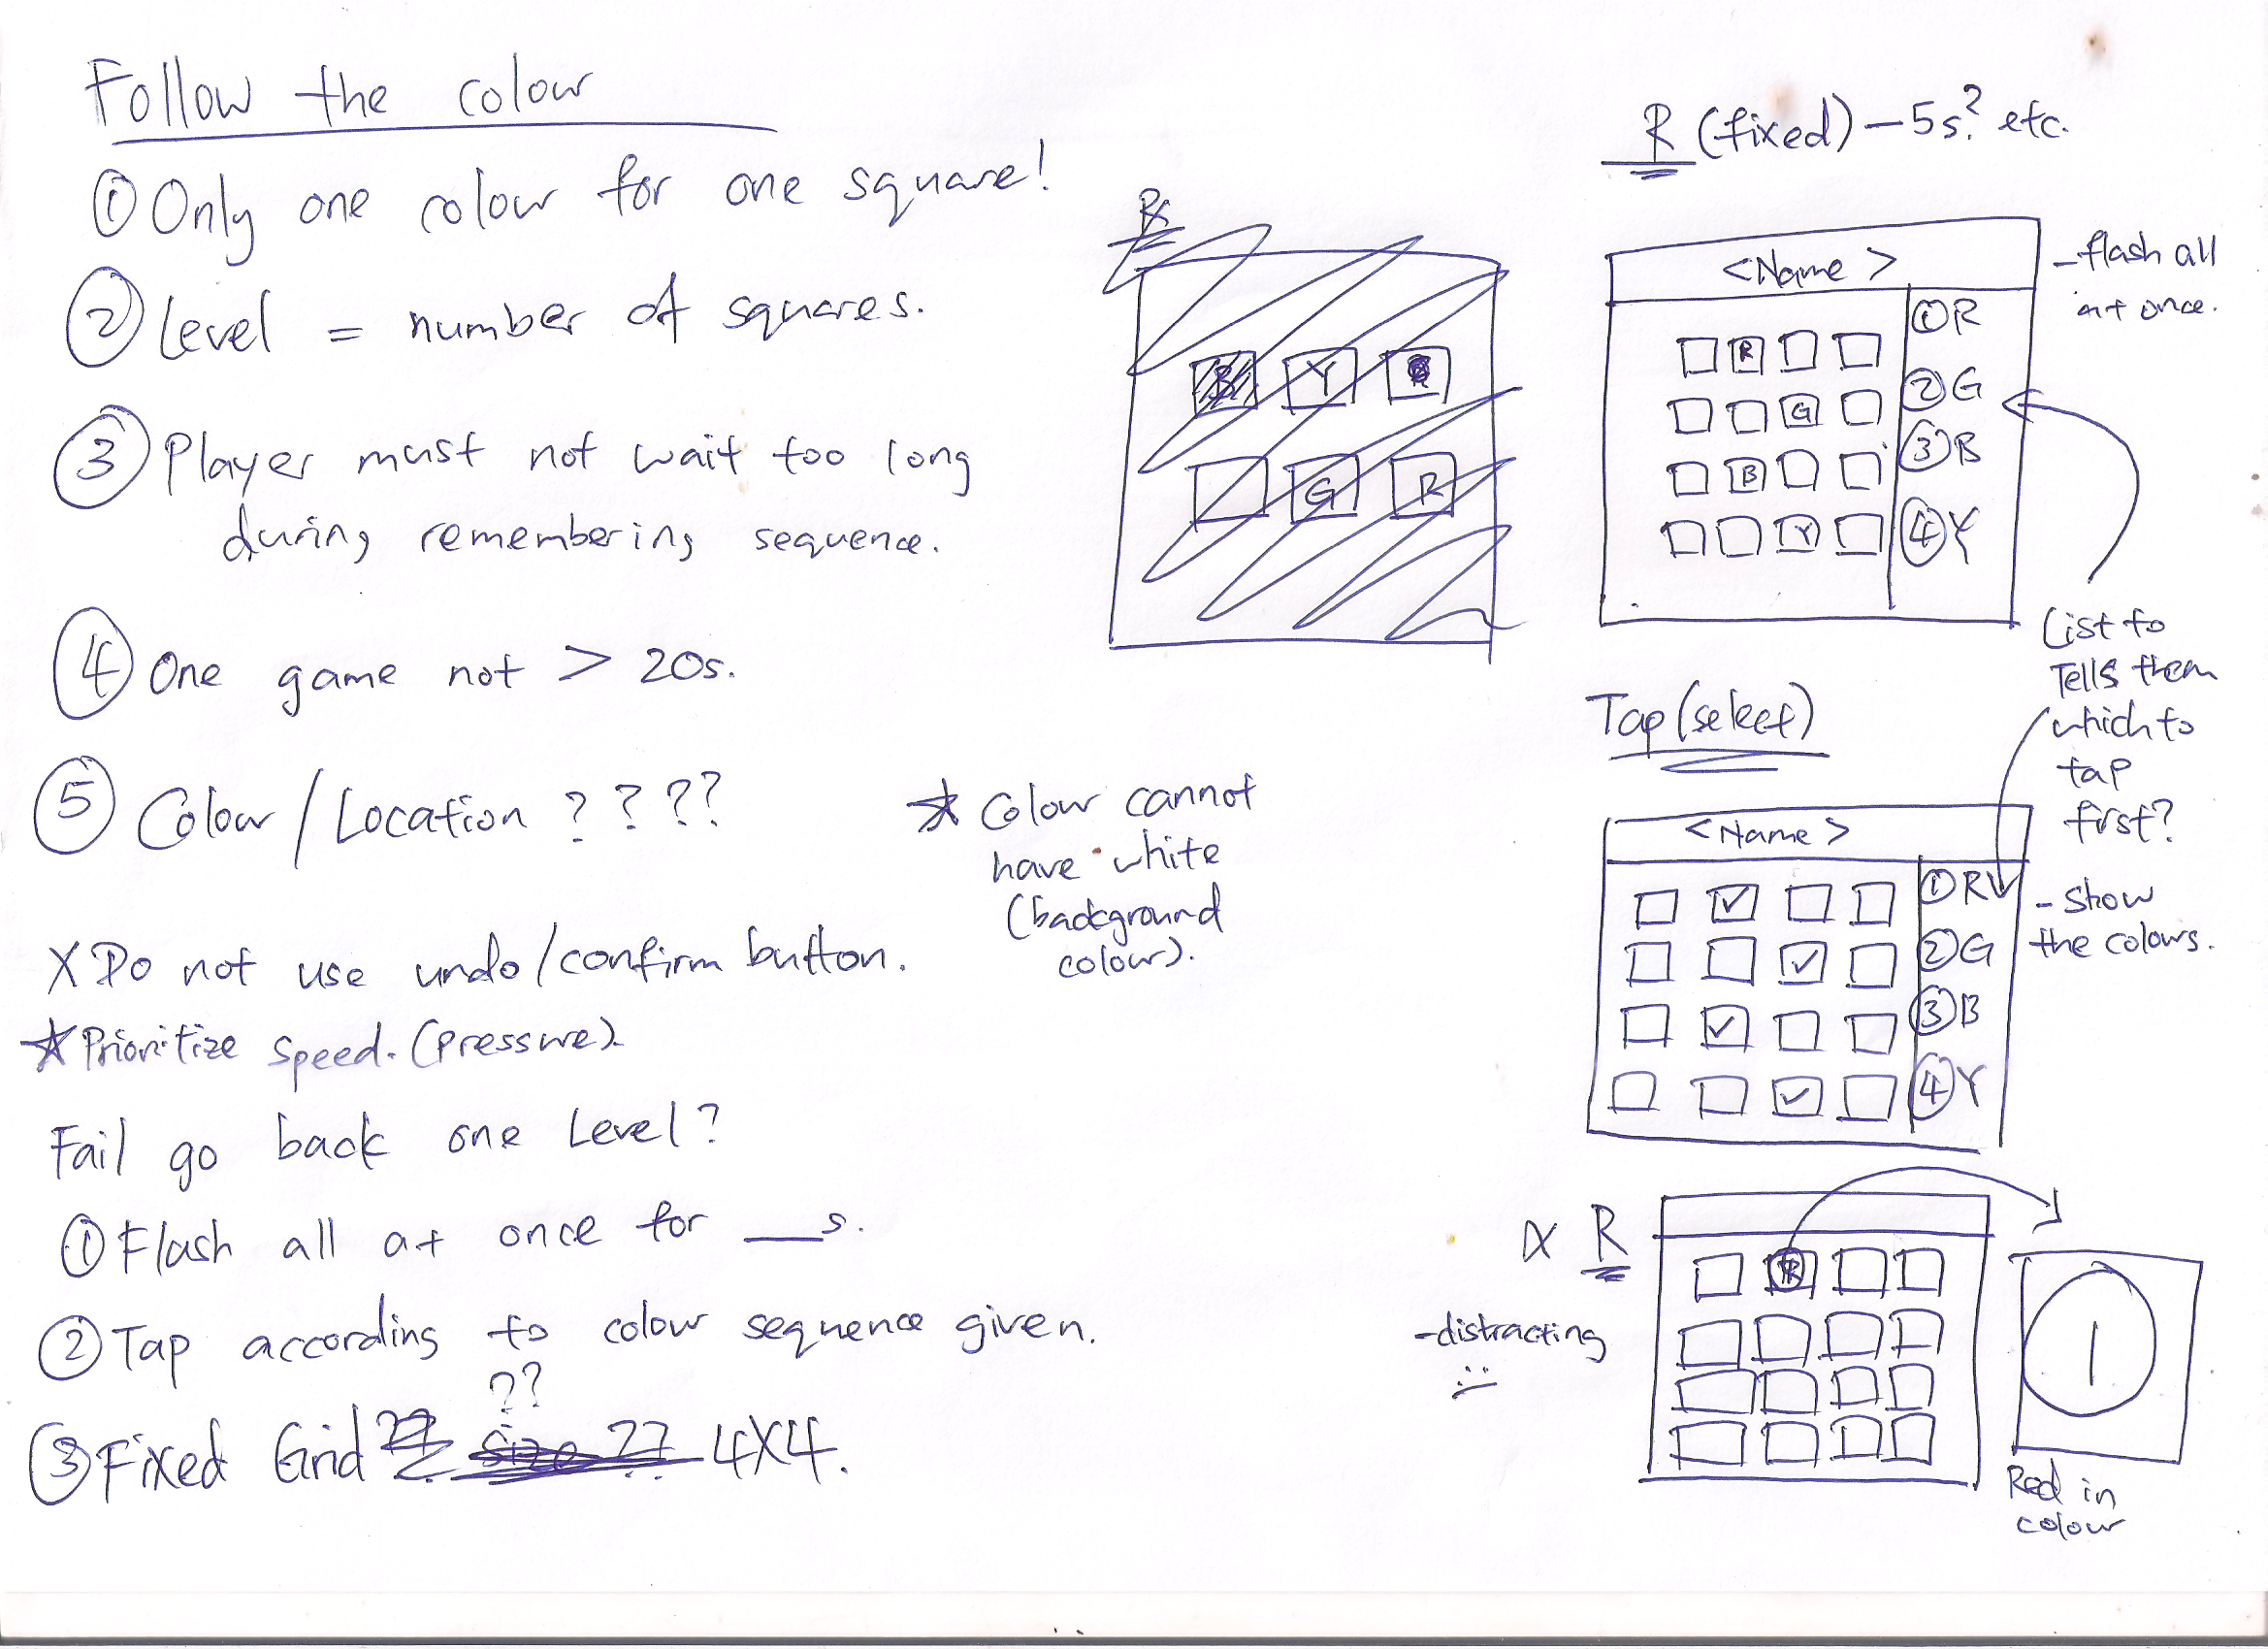 Follow the colour
① Only one colour for one square!
② Level = number of squares.
③ Player must not wait too long
during remembering sequence.
④ One game not > 20s.
⑤ Colour / Location ? ? ? ?
★ Colour cannot
have white
(background
colour).
X Do not use undo/confirm button.
★ Prioritize speed. (Pressure).
Fail go back one Level?
① Flash all at once for __s.
② Tap according to colour sequence given.
??
③ Fixed Grid 4X4.
R
B Y
G R
R (fixed) – 5s? etc.
<Name>
- flash all
at once.
R
G
B
Y
① R
② G
③ B
④ Y
List to
Tells them
which to
tap
first?
Tap (select)
<Name>
① R
② G
③ B
④ Y
- Show
the colours.
X R
- distracting
R
1
Red in
colour